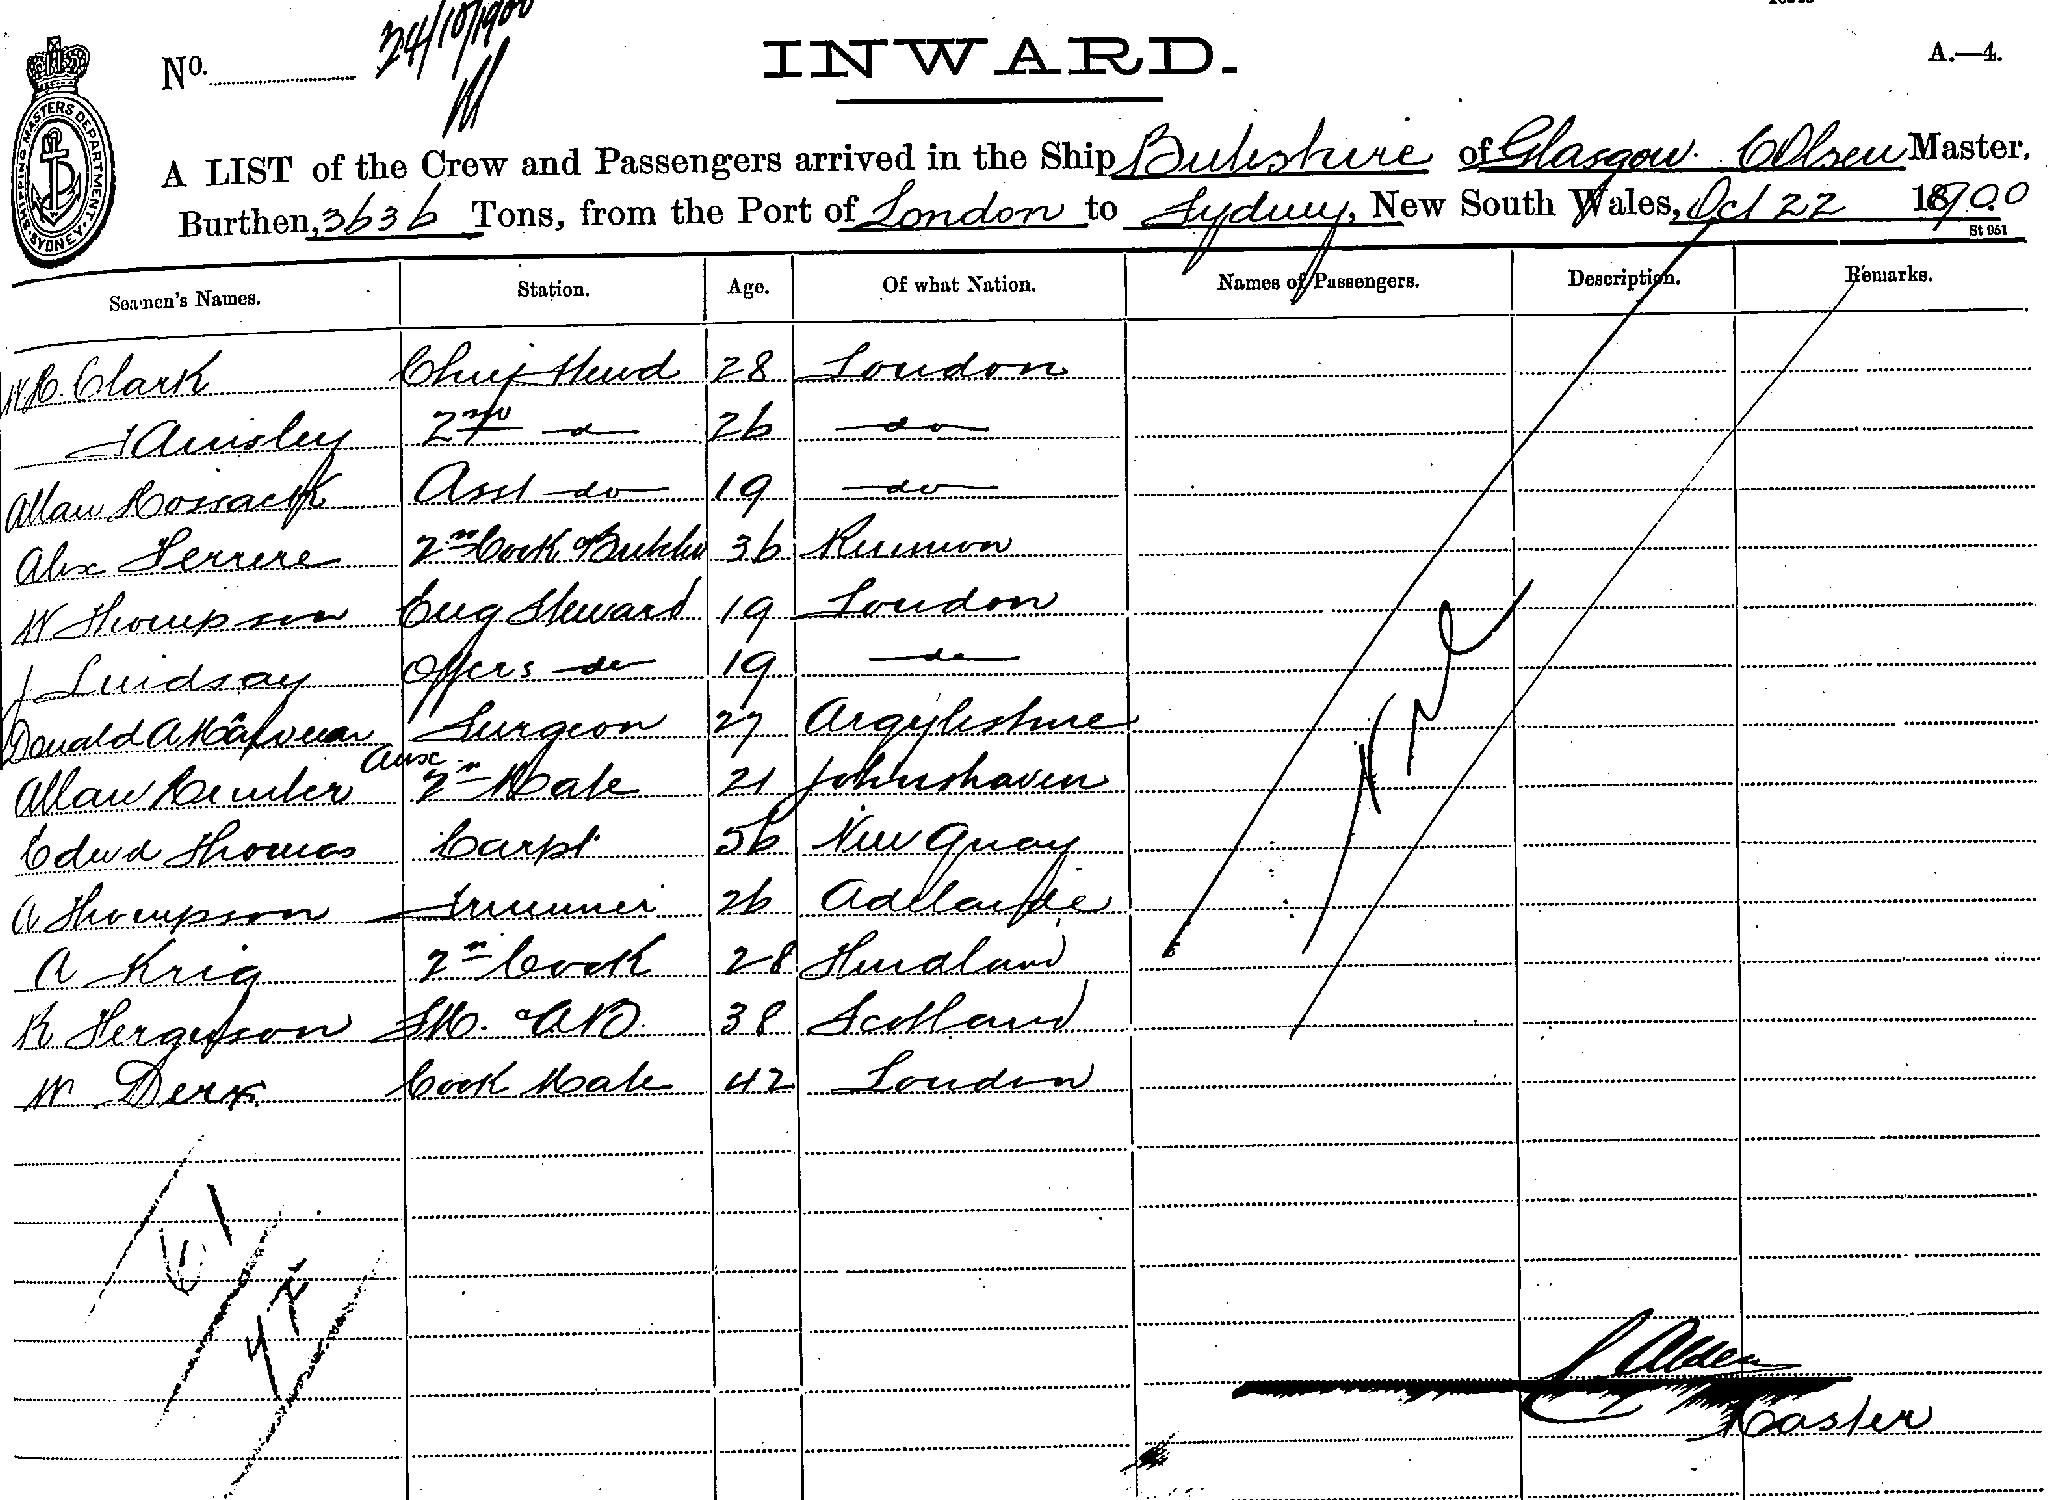 24/10/1900
No. INWARD. A.—4.
SHIPPING MASTERS DEPARTMENT. SYDNEY.
A LIST of the Crew and Passengers arrived in the Ship Buteshire of Glasgow. C Olsen Master,
Burthen, 3636 Tons, from the Port of London to Sydney, New South Wales, Oct 22 1900
St 951
Seamen's Names. Station. Age. Of what Nation. Names of Passengers. Description. Remarks.
Clark Chief Stewd 28 London
Ainsley 2nd do 26 do
Allan Cossack Asst do 19 do
Alex Ferrere 2nd Cook & Butcher 36 Reunion
W Thompson Eng Steward 19 London
J Lindsay Offcrs do 19 do
Donald A Surgeon 27 Argyleshire
Allan Hunter Aux 2nd Mate 21 Johnshaven
Edwd Thomas Carpt 56 New Quay
A Thompson Trimmer 26 Adelaide
A Krig 2nd Cook 28
R Ferguson & AB. 38 Scotland
W Derx Cook Mate 42 London
Nil
C Olsen
Master